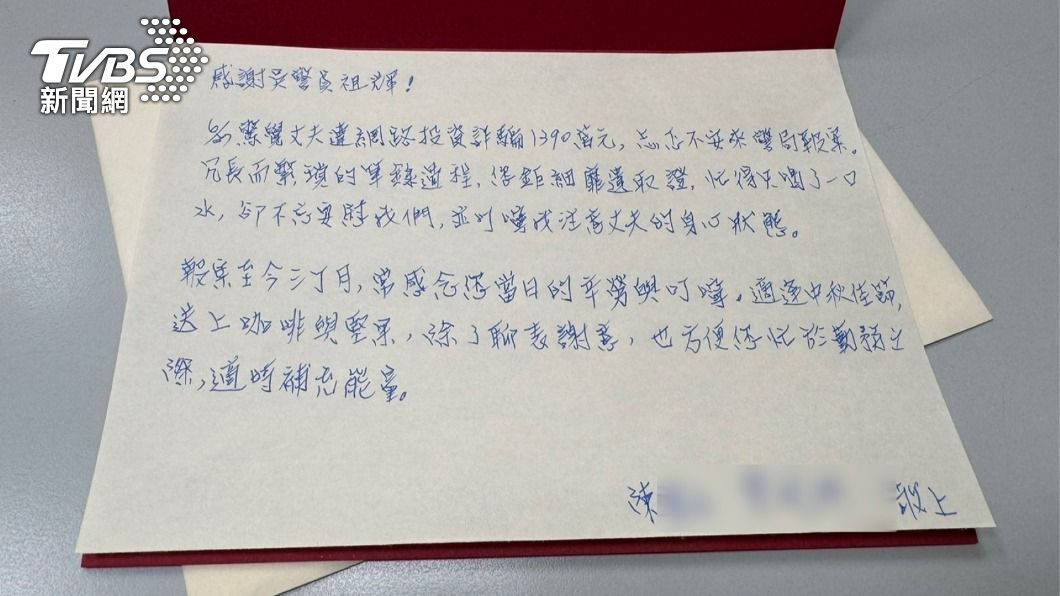 TVBS
新聞網
感謝吳警員祖輝！
當驚覺丈夫遭網路投資詐騙1390萬元，忐忑不安來警局報案。
冗長而繁瑣的筆錄過程，您鉅細靡遺取證，忙得只喝了一口
水，卻不忘安慰我們，並叮嚀我注意丈夫的身心狀態。
報案至今三個月，常感念您當日的辛勞與叮嚀。適逢中秋佳節，
送上咖啡與堅果，除了聊表謝意，也方便您忙於勤務之
際，適時補充能量。
陳 敬上